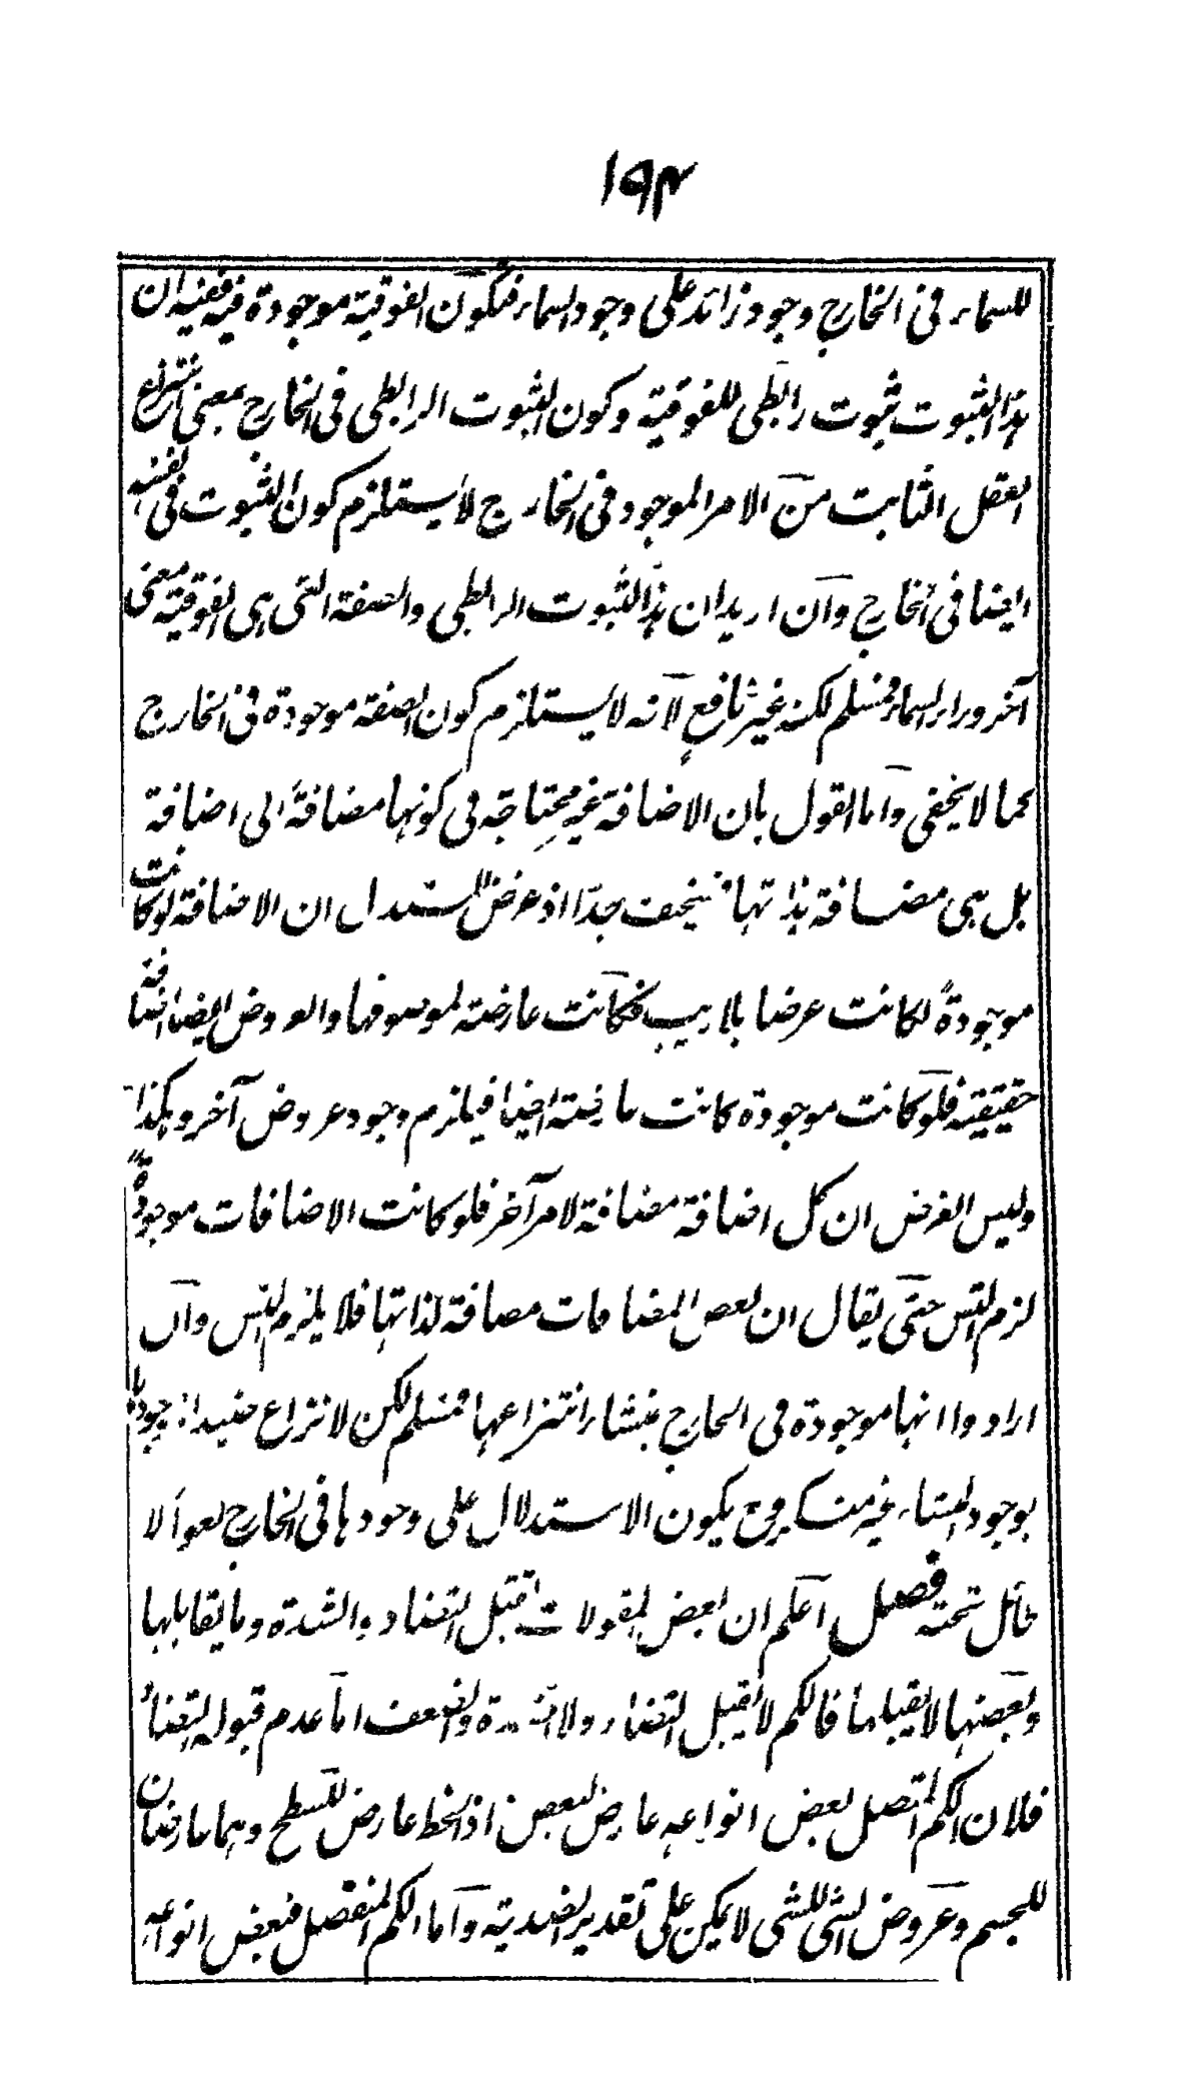 ۱۹۴
للسماء فى الخارج وجود زائد على وجود السماء فتكون الفوقية موجودة فيه ففيه ان
هذا الثبوت ثبوت رابطى للفوقية وكون الثبوت الرابطى فى الخارج بمعنى انتزاع
العقل الثابت من الامر الموجود فى الخارج لا يستلزم كون الثبوت فى نفسه
ايضا فى الخارج وان اريد ان هذا الثبوت الرابطى والصفة التى هى الفوقية معنى
آخر وراء السماء فمسلم لكنه غير نافع لانه لا يستلزم كون الصفة موجودة فى الخارج
كما لا يخفى واما القول بان الاضافة غير محتاجة فى كونها مضافةً الى اضافة
بل هى مضافة بذاتها فسخيف جدّا اذ غرض المستدل ان الاضافة لو كانت
موجودةً لكانت عرضا بلا ريب فكانت عارضة لموصوفها والعروض ايضا اضافة
حقيقية فلو كانت موجودة كانت عارضة ايضا فيلزم وجود عروض آخر وهكذا
وليس الغرض ان كل اضافة مضافة لامر آخر فلو كانت الاضافات موجودةً
لزم التس حتى يقال ان بعض المضافات مضافة لذاتها فلا يلزم التس وان
ارادوا انها موجودة فى الخارج بمنشاء انتزاعها فمسلم لكن لا نزاع حينئذ اذ وجودها
بوجود المنشاء غير منكر وح يكون الاستدلال على وجودها فى الخارج لغواً لا
طائل تحته فصل اعلم ان بعض المقولات تقبل التضاد والشدة وما يقابلها
وبعضها لا يقبلها فالكم لا يقبل التضاد ولا الشدة والضعف اما عدم قبوله التضاد
فلان الكم المتصل بعض انواعه عارض لبعض اذ الخط عارض للسطح وهما عارضان
للجسم وعروض الشى للشى لا يمكن على تقدير الضدية واما الكم المنفصل فبعض انواعه